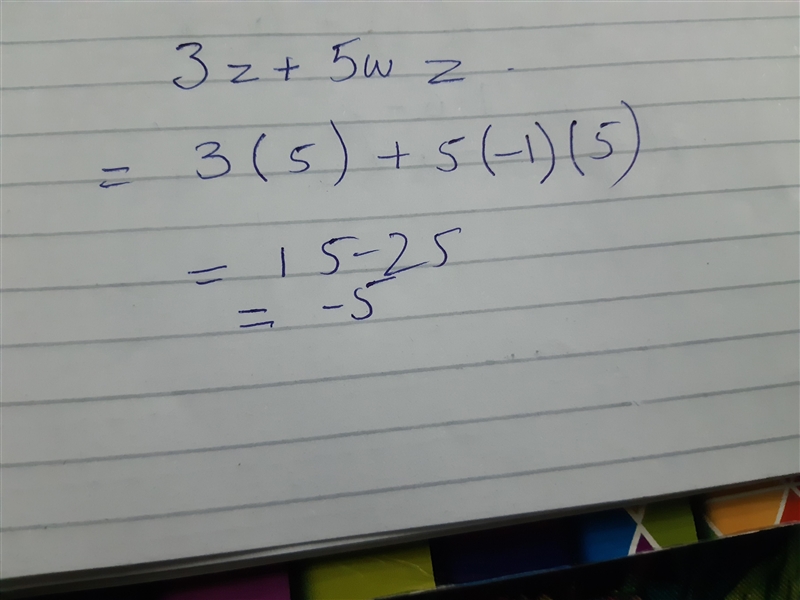 3z + 5wz
= 3(5) + 5(-1)(5)
= 15-25
= -5